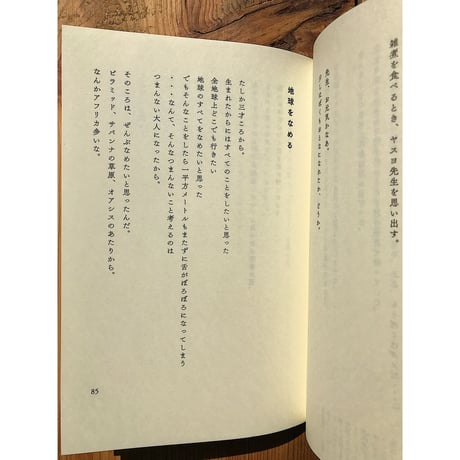 雑煮を食べるとき、ヤスヨ先生を思い出す。
先生、お元気かなあ。
少しはぼくもおとなになれたか、どうか。
地球をなめる
たしか三才ころから。
生まれたからにはすべてのことをしたいと思った
全地球上どこでも行きたい
地球のすべてをなめたいと思った
でもそんなことしたら一平方メートルもまたずに舌がぼろぼろになってしまう
・・・なんて、そんなつまんないこと考えるのは
つまんない大人になったから。
そのころは、ぜんぶなめたいと思ったんだ。
ピラミッド、サバンナの草原、オアシスのあたりから。
なんかアフリカ多いな。
85